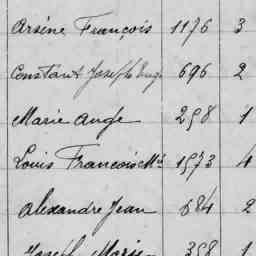 Arsène François 1176 3
Constant Joseph Eug. 696 2
Marie Ange 258 1
Louis François Mie 1573 4
Alexandre Jean 684 2
Joseph Marie 358 1